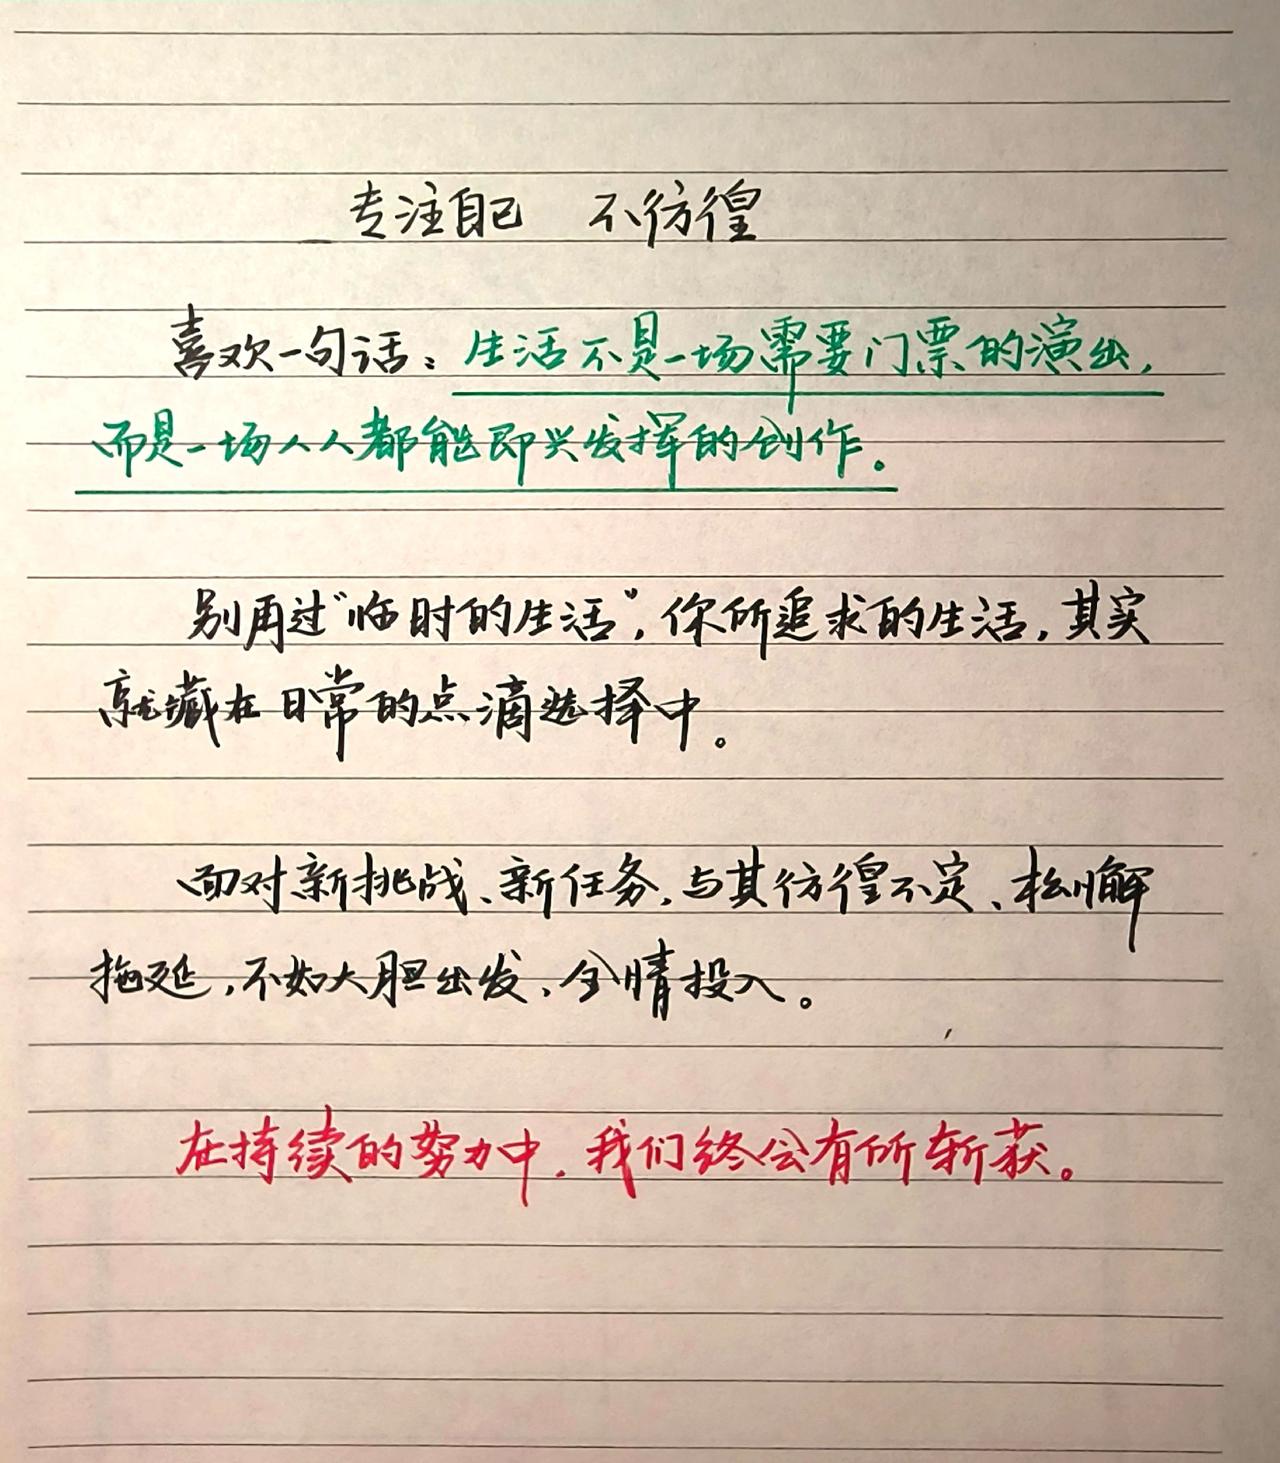 专注自己 不彷徨
喜欢一句话：生活不是一场需要门票的演出，
而是一场人人都能即兴发挥的创作。
别再过“临时的生活”，你所追求的生活，其实
就藏在日常的点滴选择中。
面对新挑战、新任务，与其彷徨不定、松懈
拖延，不如大胆出发、全情投入。
在持续的努力中，我们终会有所斩获。